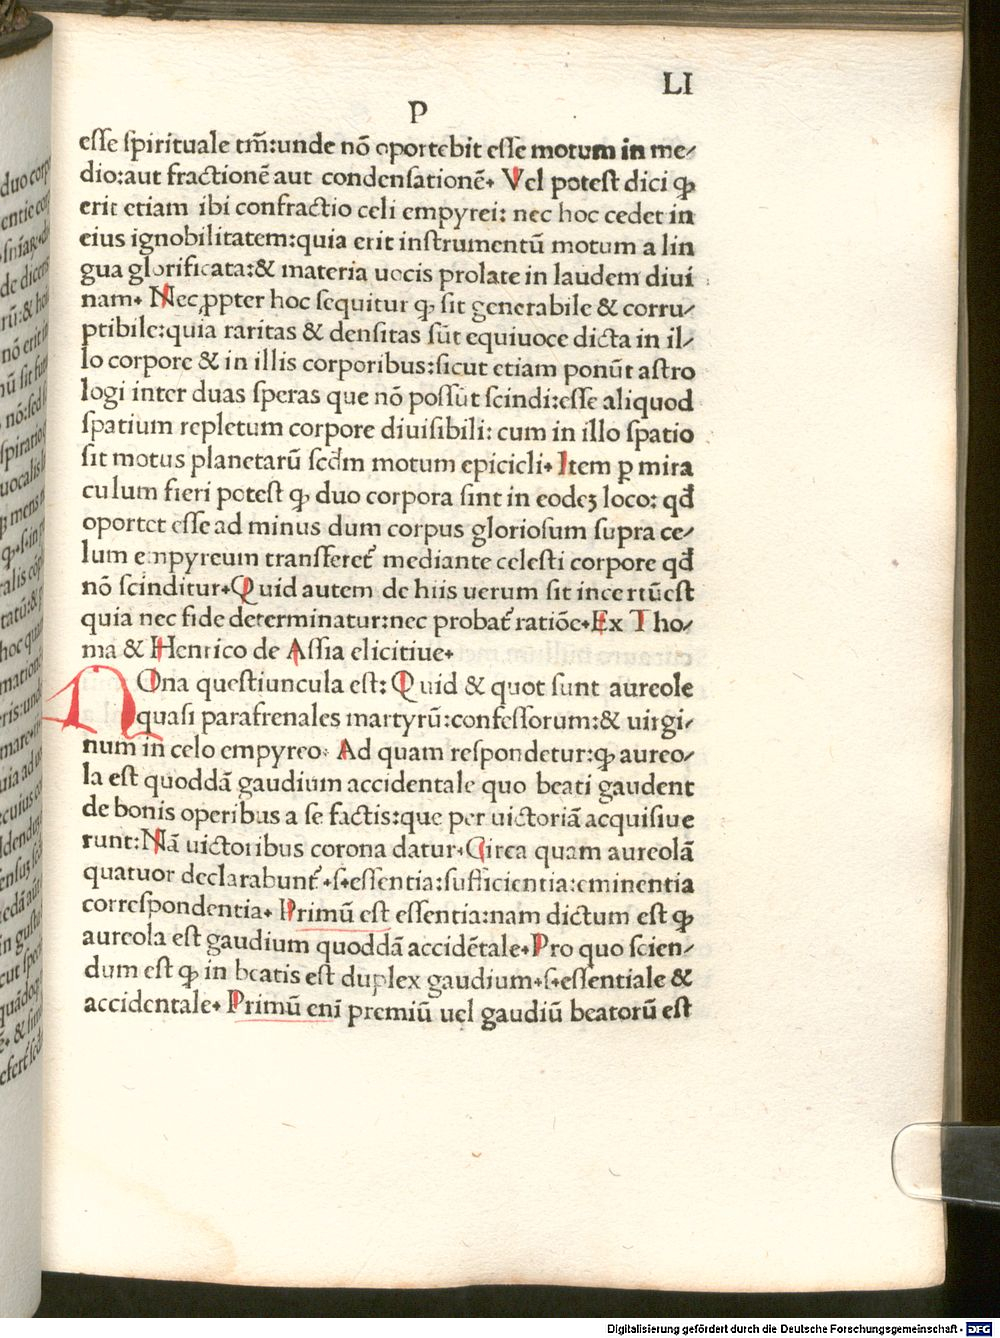 LI
P
esse spirituale tm̄:unde nō oportebit esse motum in me⸗
dio:aut fractionē aut condensationē. Vel potest dici ꝙ
erit etiam ibi confractio celi empyrei: nec hoc cedet in
eius ignobilitatem:quia erit instrumentū motum a lin
gua glorificata:& materia uocis prolate in laudem diui
nam. Nec ꝓpter hoc sequitur ꝙ sit generabile & corru⸗
ptibile:quia raritas & densitas sūt equiuoce dicta in il⸗
lo corpore & in illis corporibus:sicut etiam ponūt astro
logi inter duas speras que nō possūt scindi:esse aliquod
spatium repletum corpore diuisibili: cum in illo spatio
sit motus planetarū scd̄m motum epicicli. Item ꝑ mira
culum fieri potest ꝙ duo corpora sint in eodeꝫ loco: qđ
oportet esse ad minus dum corpus gloriosum supra ce⸗
lum empyreum transferet᷑ mediante celesti corpore qđ
nō scinditur. Quid autem de hiis uerum sit incertū est
quia nec fide determinatur:nec probat᷑ ratiōe. Ex Tho⸗
ma & Henrico de Assia elicitiue.
NOna questiuncula est: Quid & quot sunt aureole
quasi parafrenales martyrū:confessorum:& uirgi⸗
num in celo empyreo. Ad quam respondetur:ꝙ aureo⸗
la est quoddā gaudium accidentale quo beati gaudent
de bonis operibus a se factis:que per uictoriā acquisiue
runt:Nā uictoribus corona datur. Circa quam aureolā
quatuor declarabunt᷑ .s.essentia:sufficientia:eminentia
correspondentia. Primū est essentia:nam dictum est ꝙ
aureola est gaudium quoddā accidētale. Pro quo scien⸗
dum est ꝙ in beatis est duplex gaudium.s.essentiale &
accidentale. Primū eni̅ premiū uel gaudiū beatorū est
Digitalisierung gefördert durch die Deutsche Forschungsgemeinschaft - DFG